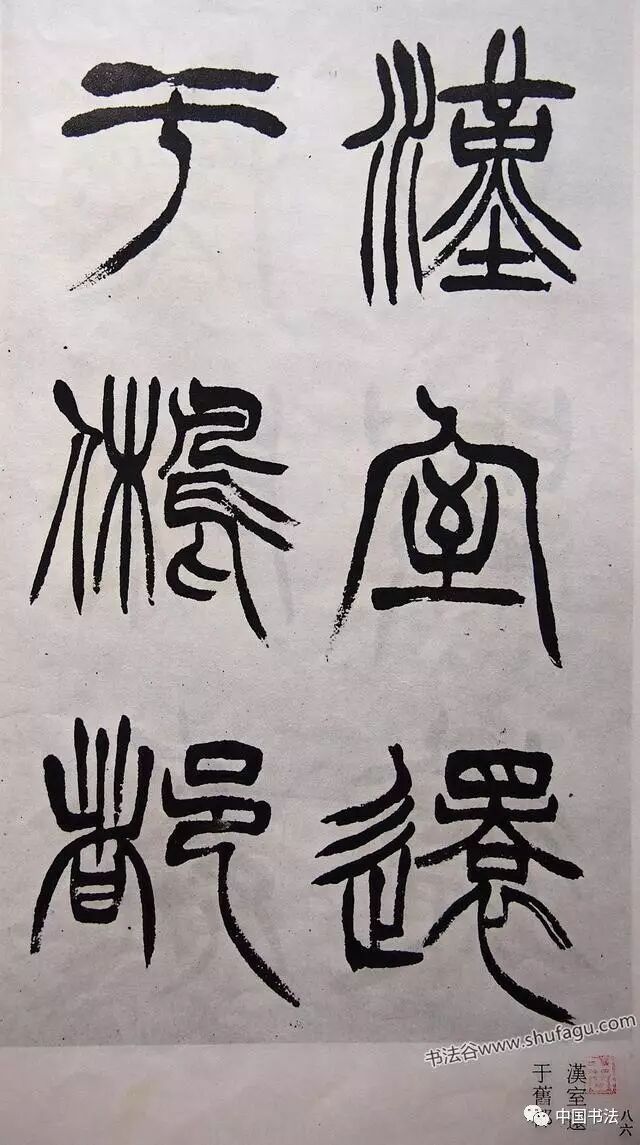 漢室還
于舊都
书法谷www.shufagu.com
漢室還
于舊都
八六
中国书法